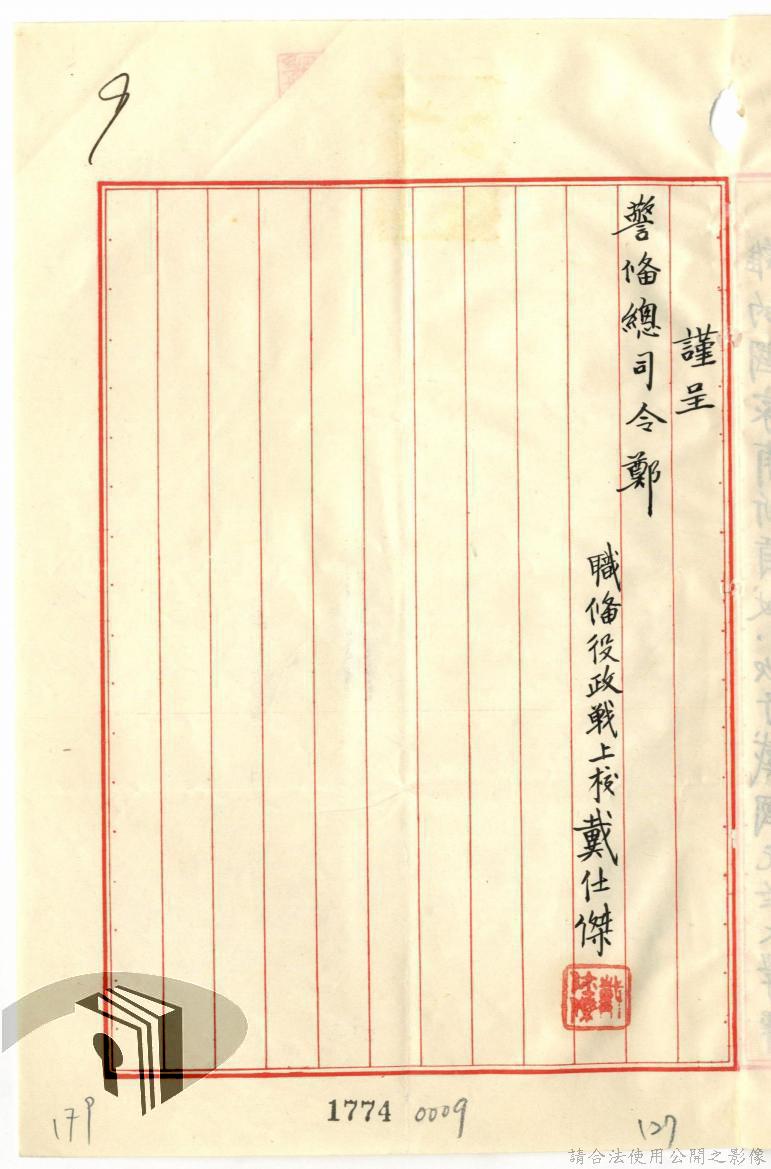 謹呈
警俻總司令鄭
職俻役政戰上校戴仕傑
9
179
1774 0009
127
請合法使用公開之影像